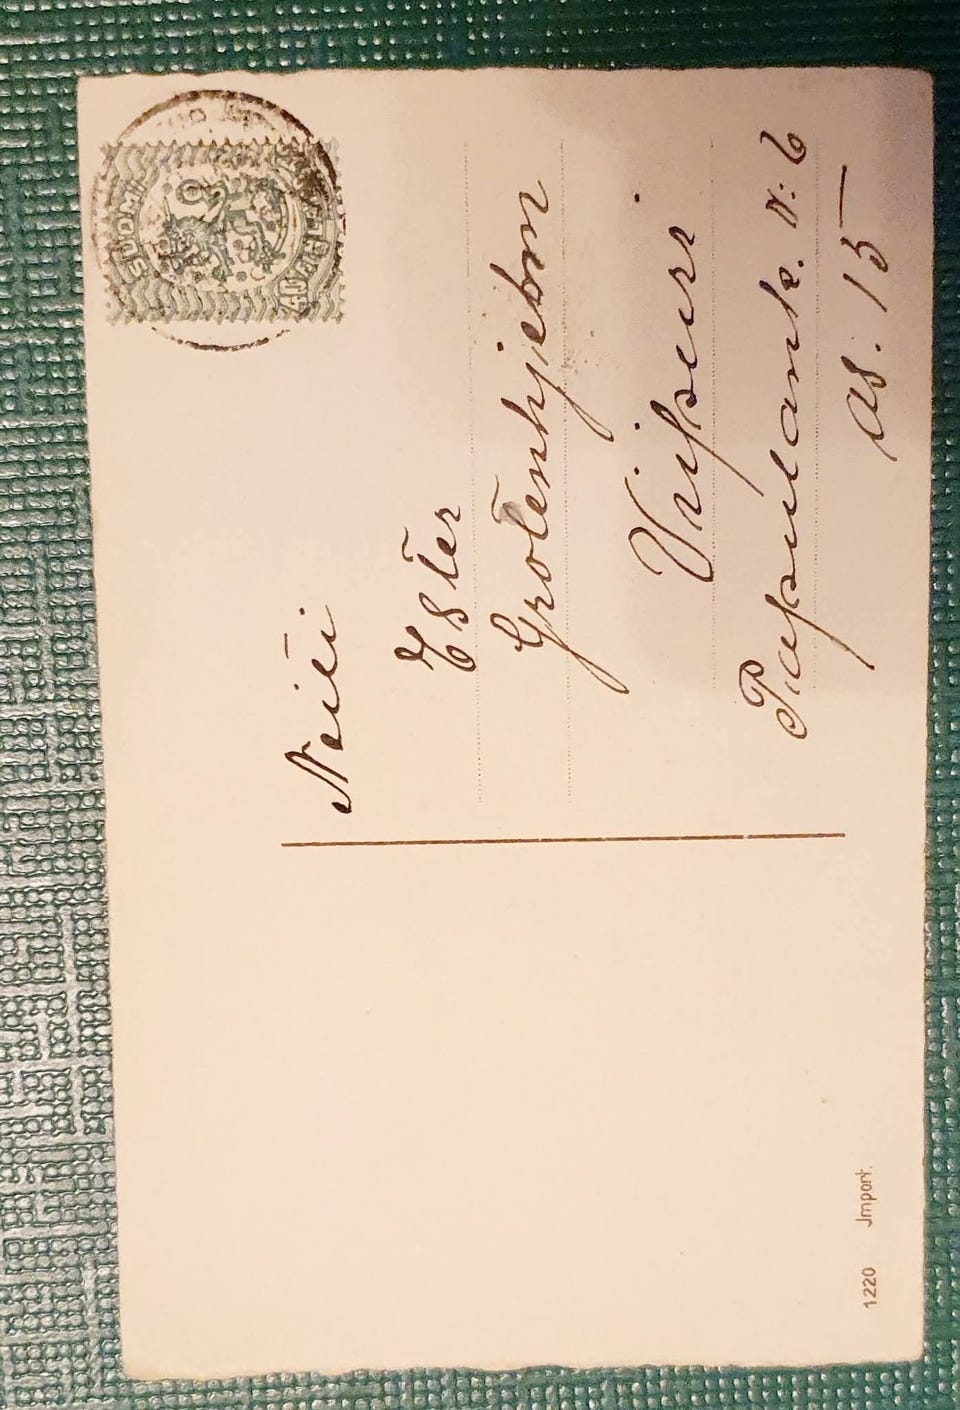 SUOMI
FINLAND
Neiti
Ester
Grotenhjelm
Viipuri
Papulank. N: 6
as. 15
1220 Jmport.